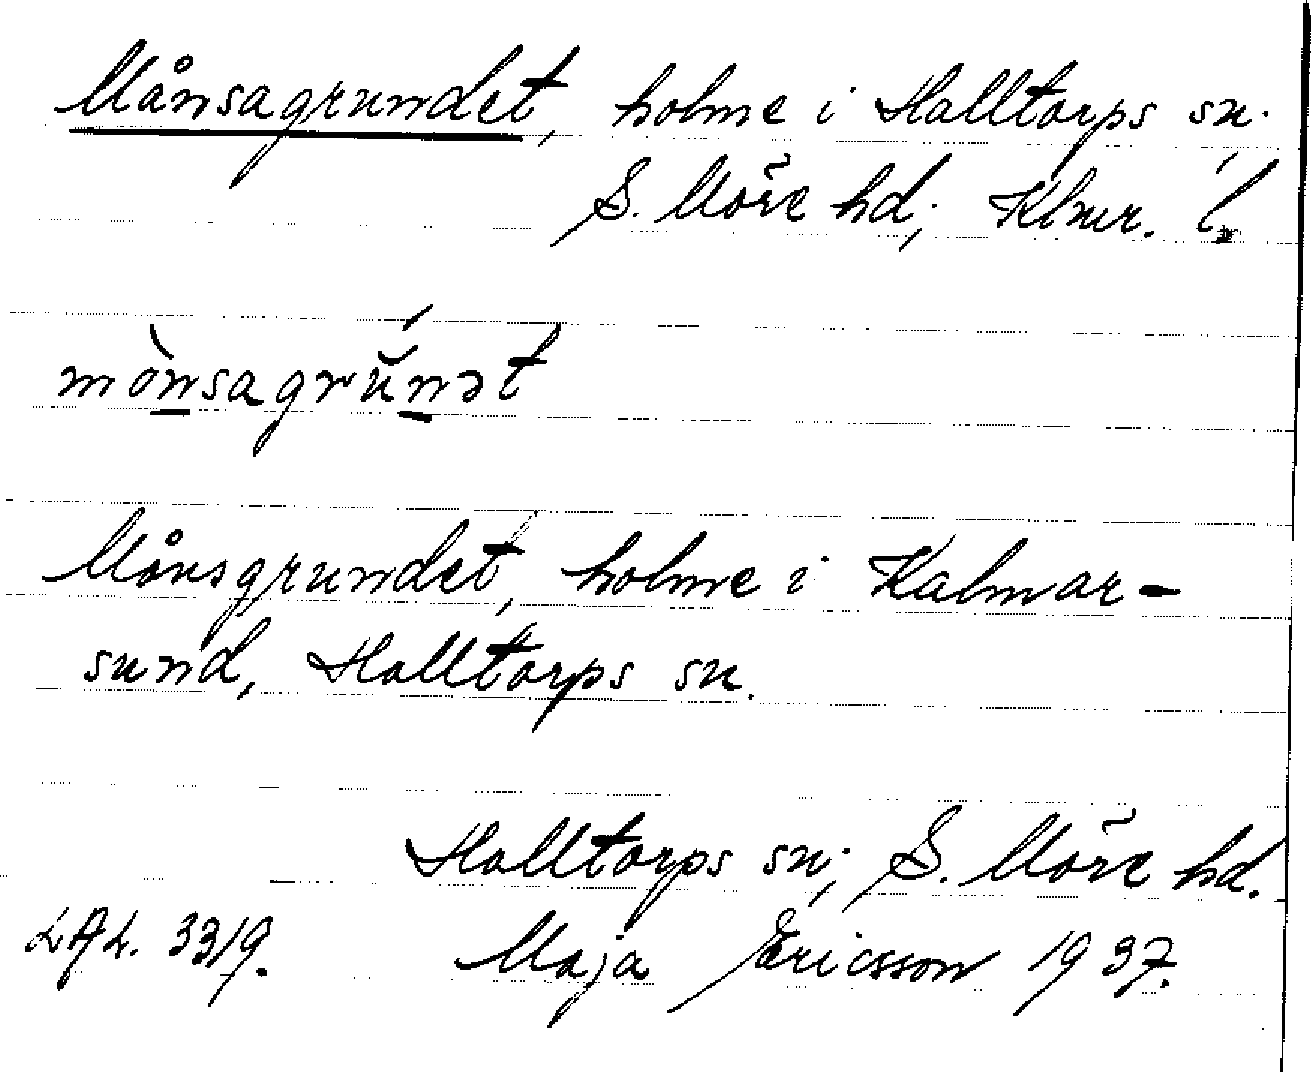 Månsagrundet, holme i Halltorps sn.,
S. Möre hd; Klmr. l.
mònsagrŭ́nət
Månsgrundet, holme i Kalmar-
sund, Halltorps sn.
Halltorps sn; S. Möre hd.
LAL. 3319. Maja Ericsson 1937.